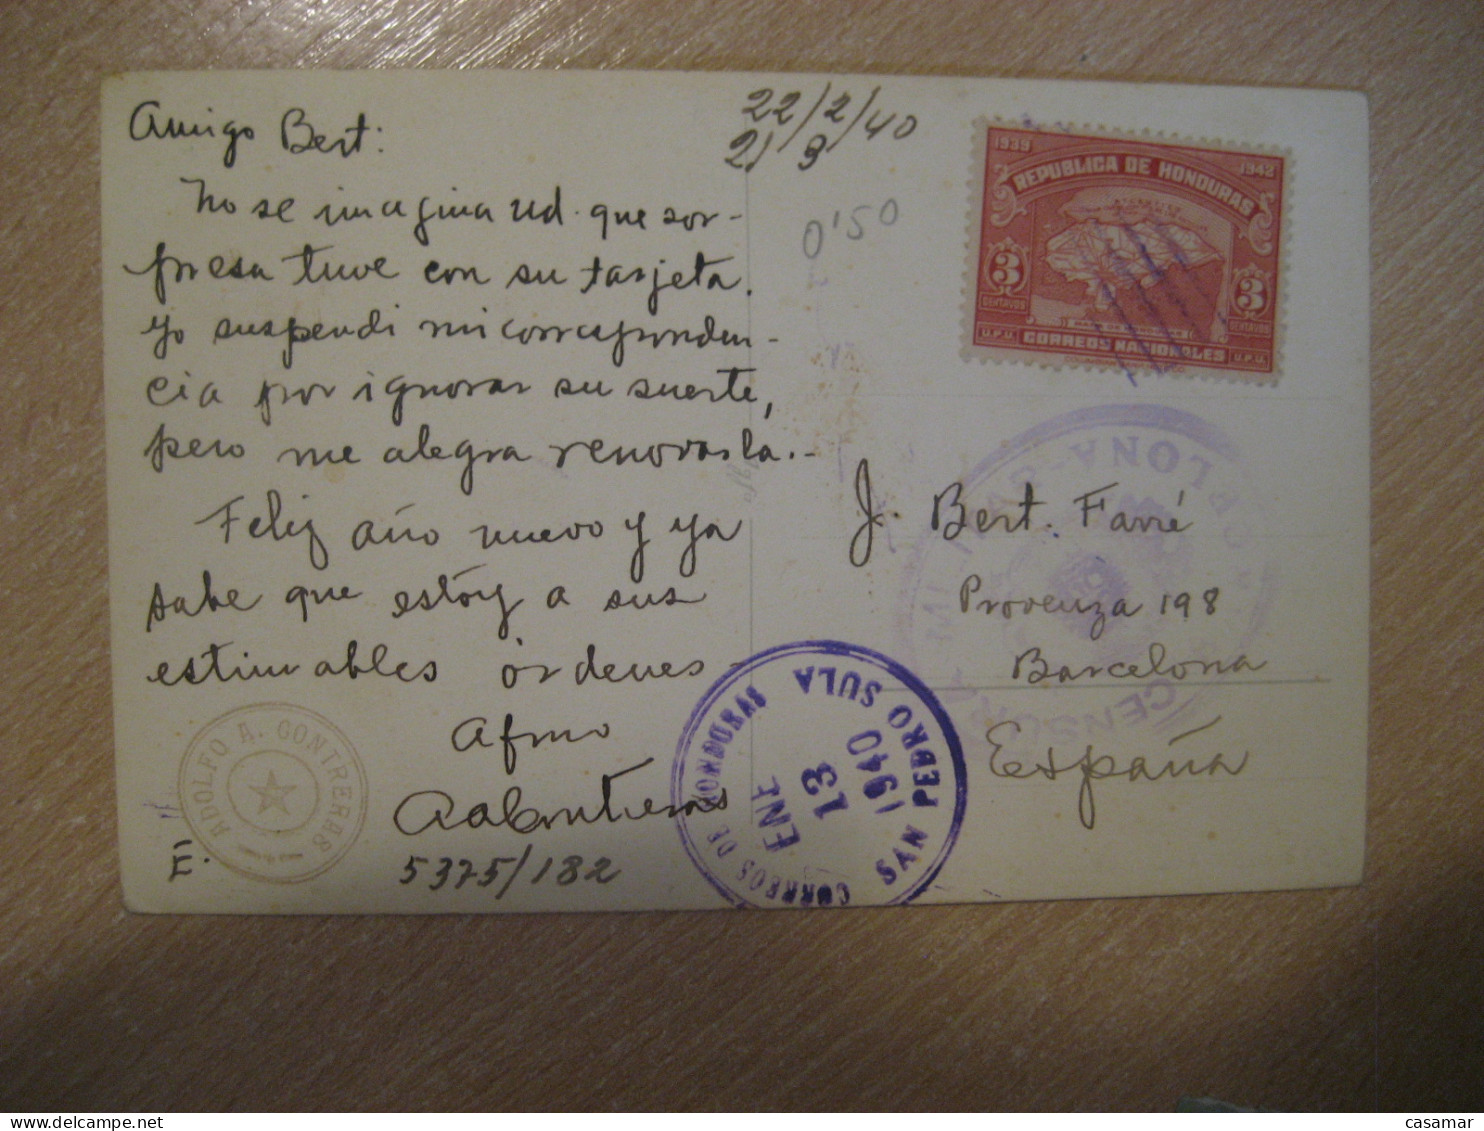 Amigo Bert:
No se imagina Ud. que sor-
presa tuve con su tarjeta.
Yo suspendi mi corresponden-
cia por ignorar su suerte,
pero me alegra renovarla.-
Feliz año nuevo y ya
sabe que estoy a sus
estimables órdenes
Afmo
AAContreras
5375/182
E.
ADOLFO A. CONTRERAS
22/2/40
21 3
0'50
1939 1942
REPUBLICA DE HONDURAS
3 3
CENTAVOS CENTAVOS
U.P.U. CORREOS NACIONALES U.P.U.
J. Bert. Farré
Provenza 198
Barcelona
España
CORREOS DE HONDURAS
ENE
13
1940
SAN PEDRO SULA
CENSURA MILITAR
casamar